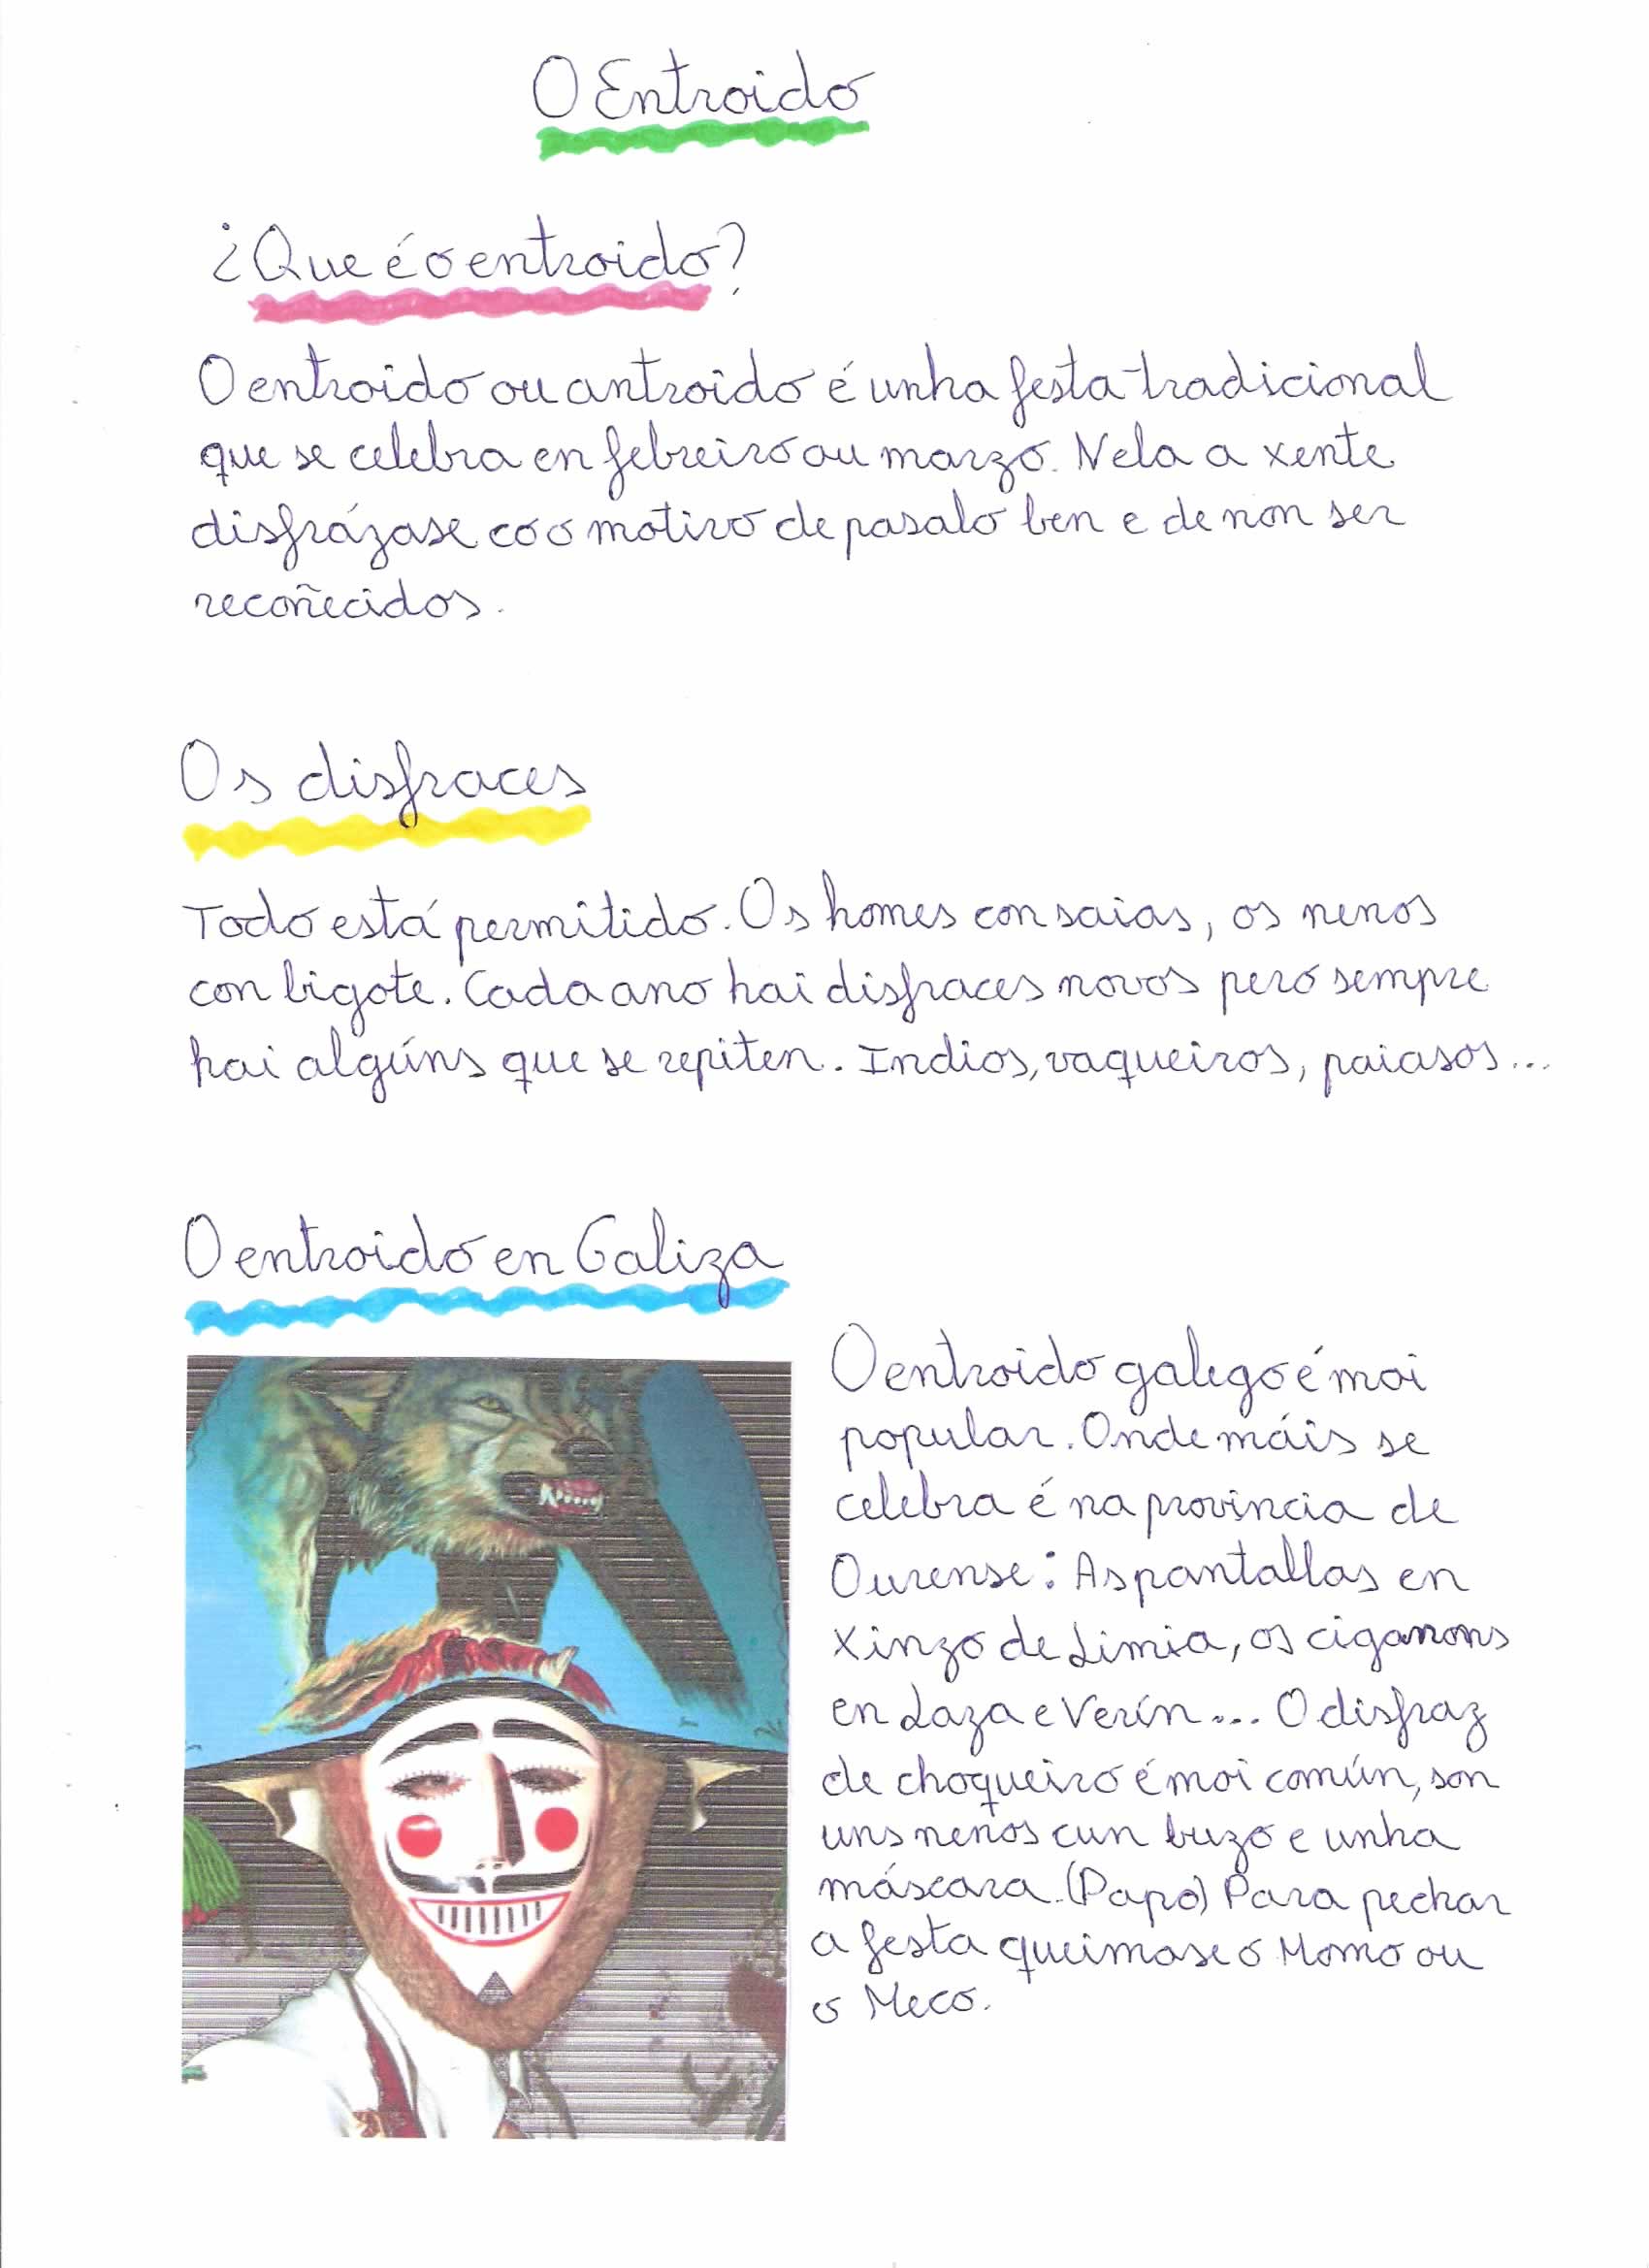 O Entroido
¿Que é o entroido?
O entroido ou antroido é unha festa tradicional
que se celebra en febreiro ou marzo. Nela a xente
disfrázase co o motivo de pasalo ben e de non ser
recoñecidos.
Os disfraces
Todo está permitido. Os homes con saias, os nenos
con bigote. Cada ano hai disfraces novos pero sempre
hai algúns que se repiten. Indios, vaqueiros, paiasos...
O entroido en Galiza
O entroido galego é moi
popular. Onde máis se
celebra é na provincia de
Ourense: As pantallas en
Xinzo de Limia, os ciganons
en Laza e Verín... O disfraz
de choqueiro é moi común, son
uns nenos cun buzo e unha
máscara. (Papo) Para pechar
a festa queimase o Momo ou
o Meco.